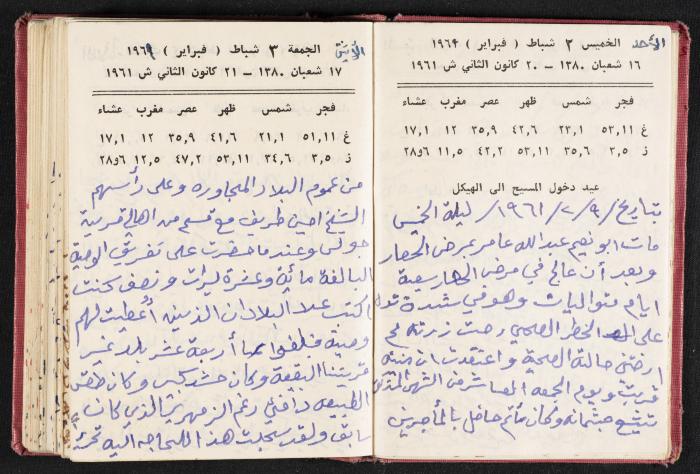 الأحد
الخميس ٢ شباط ( فبراير ) ١٩٦١
١٦ شعبان ١٣٨٠ – ٢٠ كانون الثاني ش ١٩٦١
فجر شمس ظهر عصر مغرب عشاء
غ ٥١,١١ ٢٣,١ ٤٢,٦ ٣٥,٩ ١٢ ١٧,١
ز ٣,٥ ٣٥,٦ ٥٣,١١ ٤٢,٢ ١١,٥ ٢٨و٦
عيد دخول المسيح الى الهيكل
بتاريخ ٩/ ٢/ ١٩٦١/ ليلة الخميس
مات ابو نعيم عبدالله عامر بمرض الحصار
وبعد أن عالج في مرض الحصار سبعة
ايام متواليات وهو في شدة
على الخطر الصحي رحت زرته
حالة الصحية واعتقدت ان منيته
قريب ويوم الجمعه العاشر من الشهر
تشيع جثمانه وكان مأتم حافل بالمأجرين
الاثنين
الجمعة ٣ شباط ( فبراير ) ١٩٦١
١٧ شعبان ١٣٨٠ – ٢١ كانون الثاني ش ١٩٦١
فجر شمس ظهر عصر مغرب عشاء
غ ٥١,١١ ٢١,١ ٤١,٦ ٣٥,٩ ١٢ ١٧,١
ز ٣,٥ ٣٤,٦ ٥٣,١١ ٤٧,٢ ١٢,٥ ٢٨و٦
من عموم البلاد المجاوره وعلى رأسهم
الشيخ امين طريف مع قسم من اهالي قرية
جولس وعندما حضرت على تفريق الوصية
البالغة مائة وعشرة ليرات ونصف كنت
اكتب البلادان الذين أعطيت لهم
وصية فبلغوا أربعة عشر بلد غير
قريتنا البقعة وكان حشد كبير وكان طقس
الطبيعه دافئ رغم الزمهرير الذي كان
سابق ولقد سجلت هذا للحاجه اليه